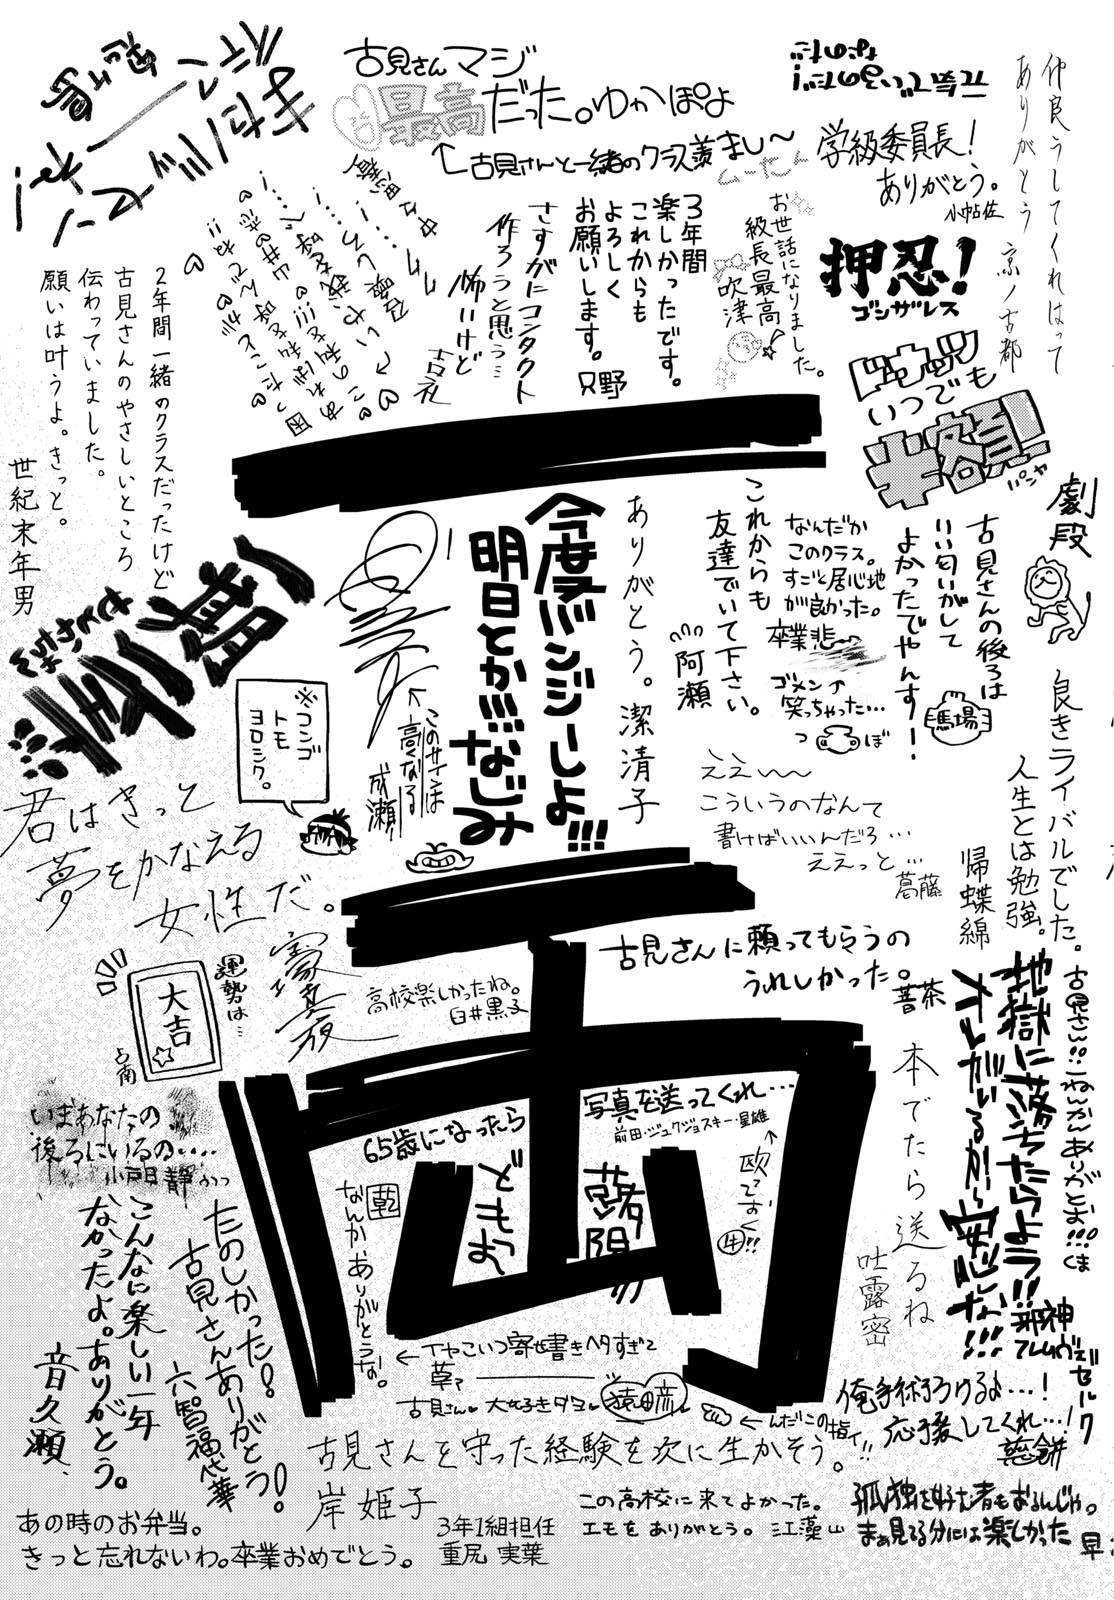 古見さんマジ
最高だった。ゆかぽよ
←古見さんと一緒のクラス羨まし〜
学級委員長!
ありがとう。
小帖佐
仲良うしてくれはって
ありがとう
京ノ古都
押忍!
ゴンザレス
お世話になりました。
級長最高
吹津
3年間
楽しかったです。
これからも
よろしく
お願いします。
只野
さすがにコンタクト
作ろうと思う…
怖いけど
古礼
2年間一緒のクラスだったけど
古見さんのやさしいところ
伝わっていました。
願いは叶うよ。きっと。
世紀末年男
ドウナツ
いつでも
半額!!
パンヤ
劇段
古見さんの後ろは
いい匂いがして
よかったでやんすー!
馬場
なんだか
このクラス。
すごく居心地
が良かった。
卒業悲
ゴメン
笑っちゃった…
つぼ
これからも
友達でいて下さい。
阿瀬
ありがとう。
潔清子
今度バンジーしよ!!!
明日とか!!!なじみ
このサインは
高くなる
成瀬
※コンゴ
トモ
ヨロシク。
一期一会
君はきっと
夢をかなえる
女性だ。
ええ〜〜
こういうのなんて
書けばいいんだろ…
ええっと…
葛藤
良きライバルでした。
人生とは勉強。
帰蝶綿
古見さんに頼ってもらうの
うれしかった。
昔茶
高校楽しかったね。
白井黒子
運勢は…
大吉
占南
いまあなたの
後ろにいるの….
小戸日静
古見さん!!一ねんかんありがとお!!!
くま
地獄に落ちたらよう!!
オレがいるから安心しな!!!
邪神
本でたら送るね
吐露密
写真を送ってくれ…
前田・ジュクジョスキー・星雄
65歳になったら
どもっ
乾
なんか、ありがとうな!
たのしかった!
古見さんありがとう!
六智福代華
こんなに楽しい一年
なかったよ。ありがとう。
音久瀬、
←イヤこいつ寄せ書きヘタすぎて
草ァ
古見さん 大好きダヨ 猿田彦
←んだこの指ィ!!
俺手術うけるよ…!
応援してくれ…!
古見さんを守った経験を次に生かそう。
岸姫子
あの時のお弁当。
きっと忘れないわ。卒業おめでとう。
3年1組担任
重尻 実葉
この高校に来てよかった。
エモをありがとう。 江藻山
孤独を好む者もおるんじゃ。
まぁ見てる分には楽しかった
早